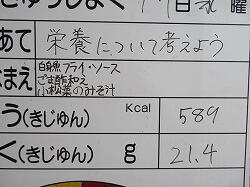 あて 栄養について考えよう
まえ 白身魚フライ・ソース
ごま酢和え
小松菜のみそ汁
う(きじゅん) Kcal 589
く(きじゅん) g 21.4